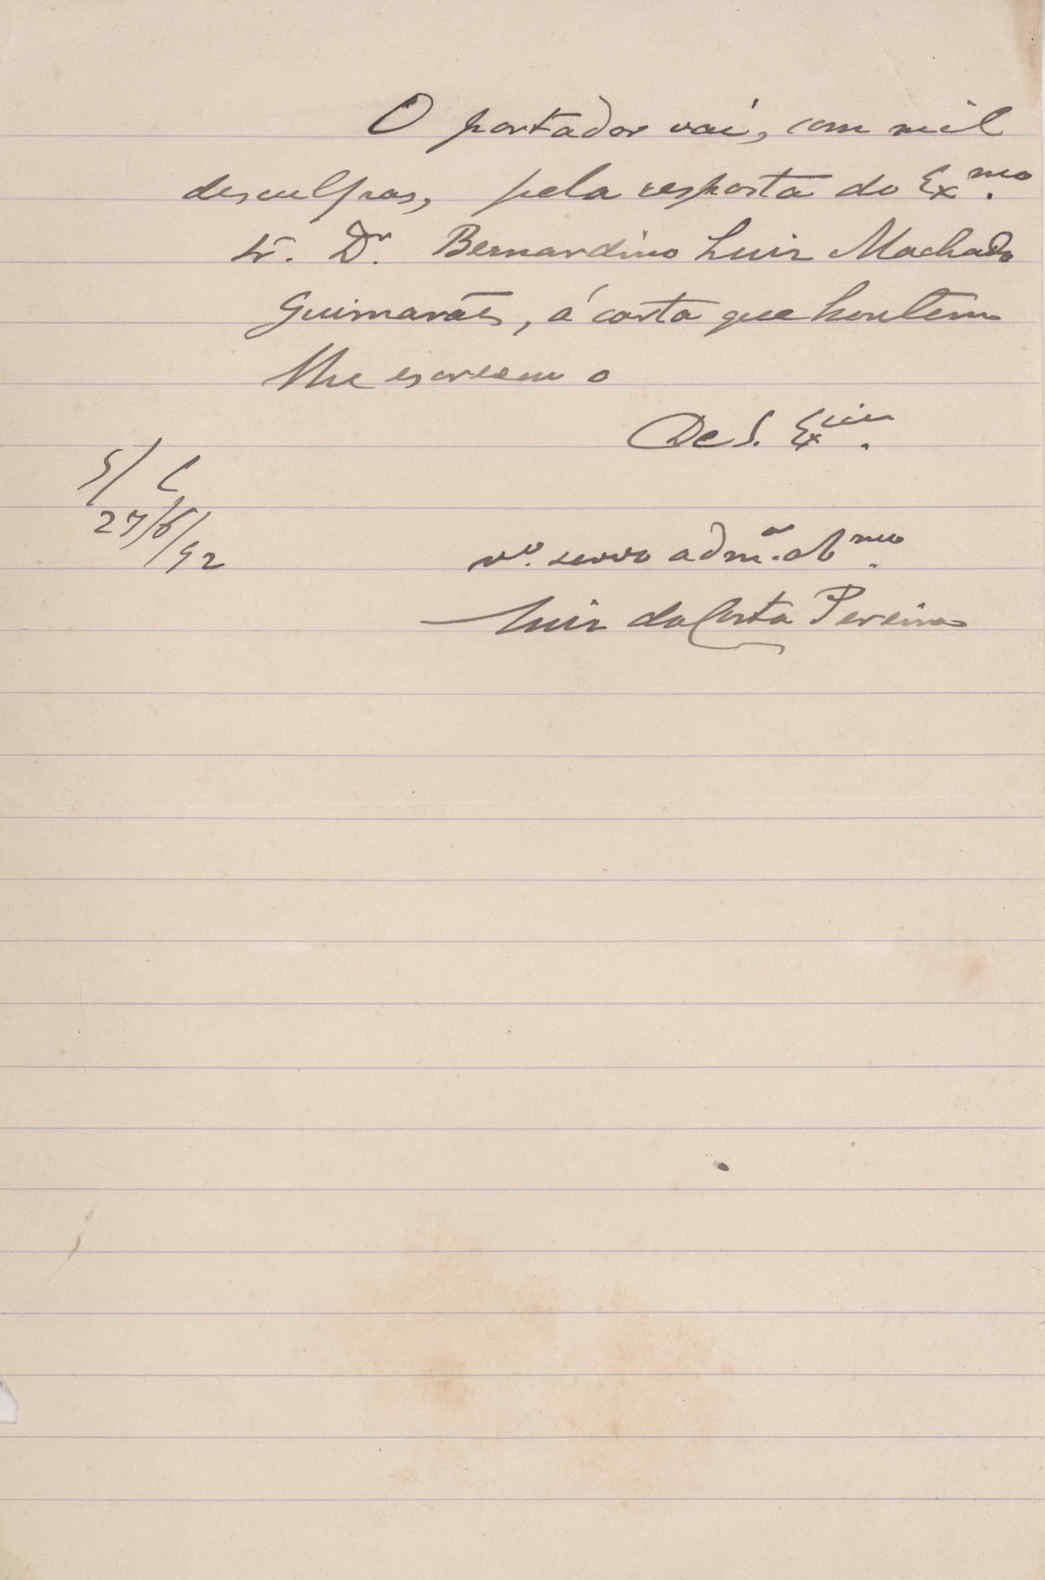 O portador vai, com mil
desculpas, pela resposta do Ex.mo
Sr. Dr. Bernardino Luiz Machado
Guimarães, á carta que hontem
lhe escreveu o
De S. Ex.cia
S/ C
27/6/92
servo adm.or ob.mo
Luiz da Costa Pereira